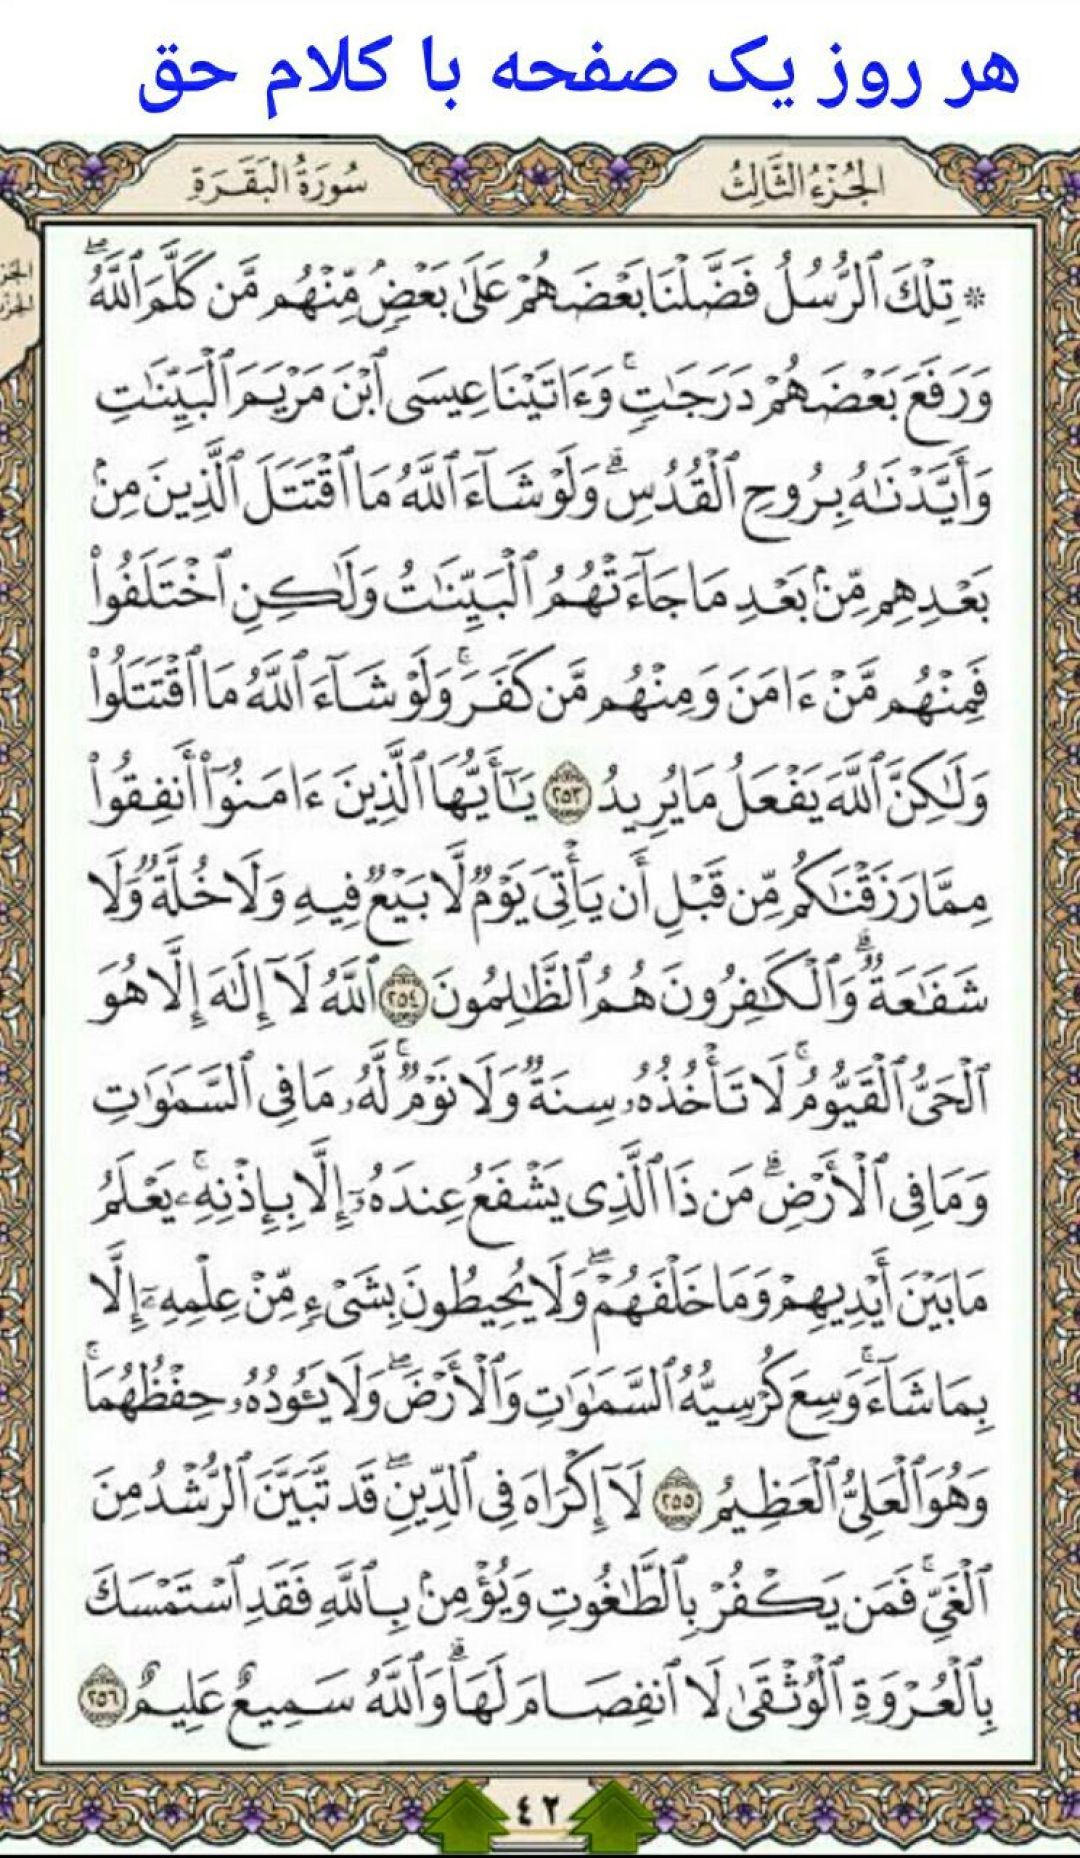 هر روز یک صفحه با کلام حق
الجُزْءُ الثَّالِثُ
سُورَةُ البَقَرَةِ
الجز
الجز
۞ تِلْكَ ٱلرُّسُلُ فَضَّلْنَا بَعْضَهُمْ عَلَىٰ بَعْضٍ مِّنْهُم مَّن كَلَّمَ ٱللَّهُ ۖ
وَرَفَعَ بَعْضَهُمْ دَرَجَٰتٍ ۚ وَءَاتَيْنَا عِيسَى ٱبْنَ مَرْيَمَ ٱلْبَيِّنَٰتِ
وَأَيَّدْنَٰهُ بِرُوحِ ٱلْقُدُسِ ۗ وَلَوْ شَآءَ ٱللَّهُ مَا ٱقْتَتَلَ ٱلَّذِينَ مِنۢ
بَعْدِهِم مِّنۢ بَعْدِ مَا جَآءَتْهُمُ ٱلْبَيِّنَٰتُ وَلَٰكِنِ ٱخْتَلَفُوا۟
فَمِنْهُم مَّنْ ءَامَنَ وَمِنْهُم مَّن كَفَرَ ۚ وَلَوْ شَآءَ ٱللَّهُ مَا ٱقْتَتَلُوا۟
وَلَٰكِنَّ ٱللَّهَ يَفْعَلُ مَا يُرِيدُ ٢٥٣ يَٰٓأَيُّهَا ٱلَّذِينَ ءَامَنُوٓا۟ أَنفِقُوا۟
مِمَّا رَزَقْنَٰكُم مِّن قَبْلِ أَن يَأْتِىَ يَوْمٌ لَّا بَيْعٌ فِيهِ وَلَا خُلَّةٌ وَلَا
شَفَٰعَةٌ ۗ وَٱلْكَٰفِرُونَ هُمُ ٱلظَّٰلِمُونَ ٢٥٤ ٱللَّهُ لَآ إِلَٰهَ إِلَّا هُوَ
ٱلْحَىُّ ٱلْقَيُّومُ ۚ لَا تَأْخُذُهُۥ سِنَةٌ وَلَا نَوْمٌ ۚ لَّهُۥ مَا فِى ٱلسَّمَٰوَٰتِ
وَمَا فِى ٱلْأَرْضِ ۗ مَن ذَا ٱلَّذِى يَشْفَعُ عِندَهُۥٓ إِلَّا بِإِذْنِهِۦ ۚ يَعْلَمُ
مَا بَيْنَ أَيْدِيهِمْ وَمَا خَلْفَهُمْ ۖ وَلَا يُحِيطُونَ بِشَىْءٍ مِّنْ عِلْمِهِۦٓ إِلَّا
بِمَا شَآءَ ۚ وَسِعَ كُرْسِيُّهُ ٱلسَّمَٰوَٰتِ وَٱلْأَرْضَ ۖ وَلَا يَـُٔودُهُۥ حِفْظُهُمَا ۚ
وَهُوَ ٱلْعَلِىُّ ٱلْعَظِيمُ ٢٥٥ لَآ إِكْرَاهَ فِى ٱلدِّينِ ۖ قَد تَّبَيَّنَ ٱلرُّشْدُ مِنَ
ٱلْغَىِّ ۚ فَمَن يَكْفُرْ بِٱلطَّٰغُوتِ وَيُؤْمِنۢ بِٱللَّهِ فَقَدِ ٱسْتَمْسَكَ
بِٱلْعُرْوَةِ ٱلْوُثْقَىٰ لَا ٱنفِصَامَ لَهَا ۗ وَٱللَّهُ سَمِيعٌ عَلِيمٌ ٢٥٦
٤٢